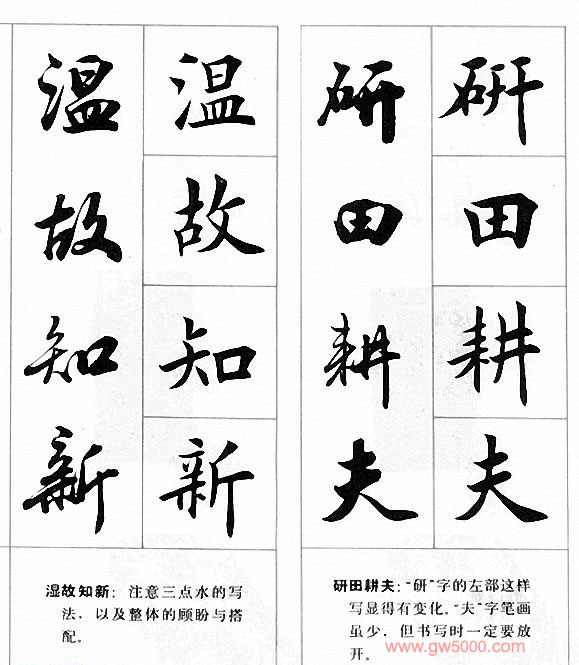 研田耕夫
研田耕夫
研田耕夫：“研”字的左部这样
写显得有变化。“夫”字笔画
虽少，但书写时一定要放
开。
温故知新
温故知新
湿故知新：注意三点水的写
法，以及整体的顾盼与搭
配。
www.gw5000.com